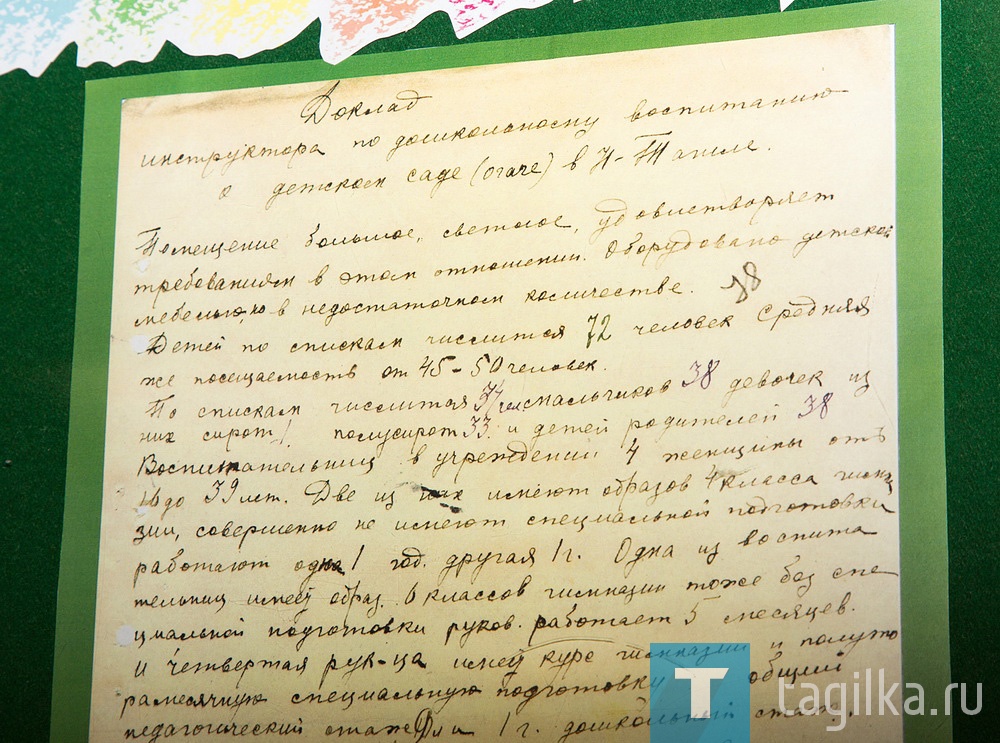 Доклад
инструктора по дошкольному воспитанию
о детском саде (очаге) в Н-Тагиле.
Помещение большое, светлое, удовлетворяет
требованиям в этом отношении. Оборудовано детской
мебелью, но в недостаточном количестве.
Детей по спискам числится 72 человек средняя
же посещаемость от 45-50 человек.
По спискам числится мальчиков 38 девочек из
них сирот 1 полусирот 33 и детей родителей 38
Воспитательниц в учреждении 4 женщины отъ
до 39 лет. Две из них имеют образов 4 класса гимна
зии, совершенно не имеют специальной подготовки
работают одна 1 год. другая 1 г. Одна из воспита
тельниц имеет образ. 6 классов гимназии тоже без спе
циальной подготовки руков. работает 5 месяцев.
и четвертая рук-ца имеет курс гимназии и полуто
рамесячную специальную подготовку общий
педагогический стаж 1 г. дошкольный стаж
T tagilka.ru